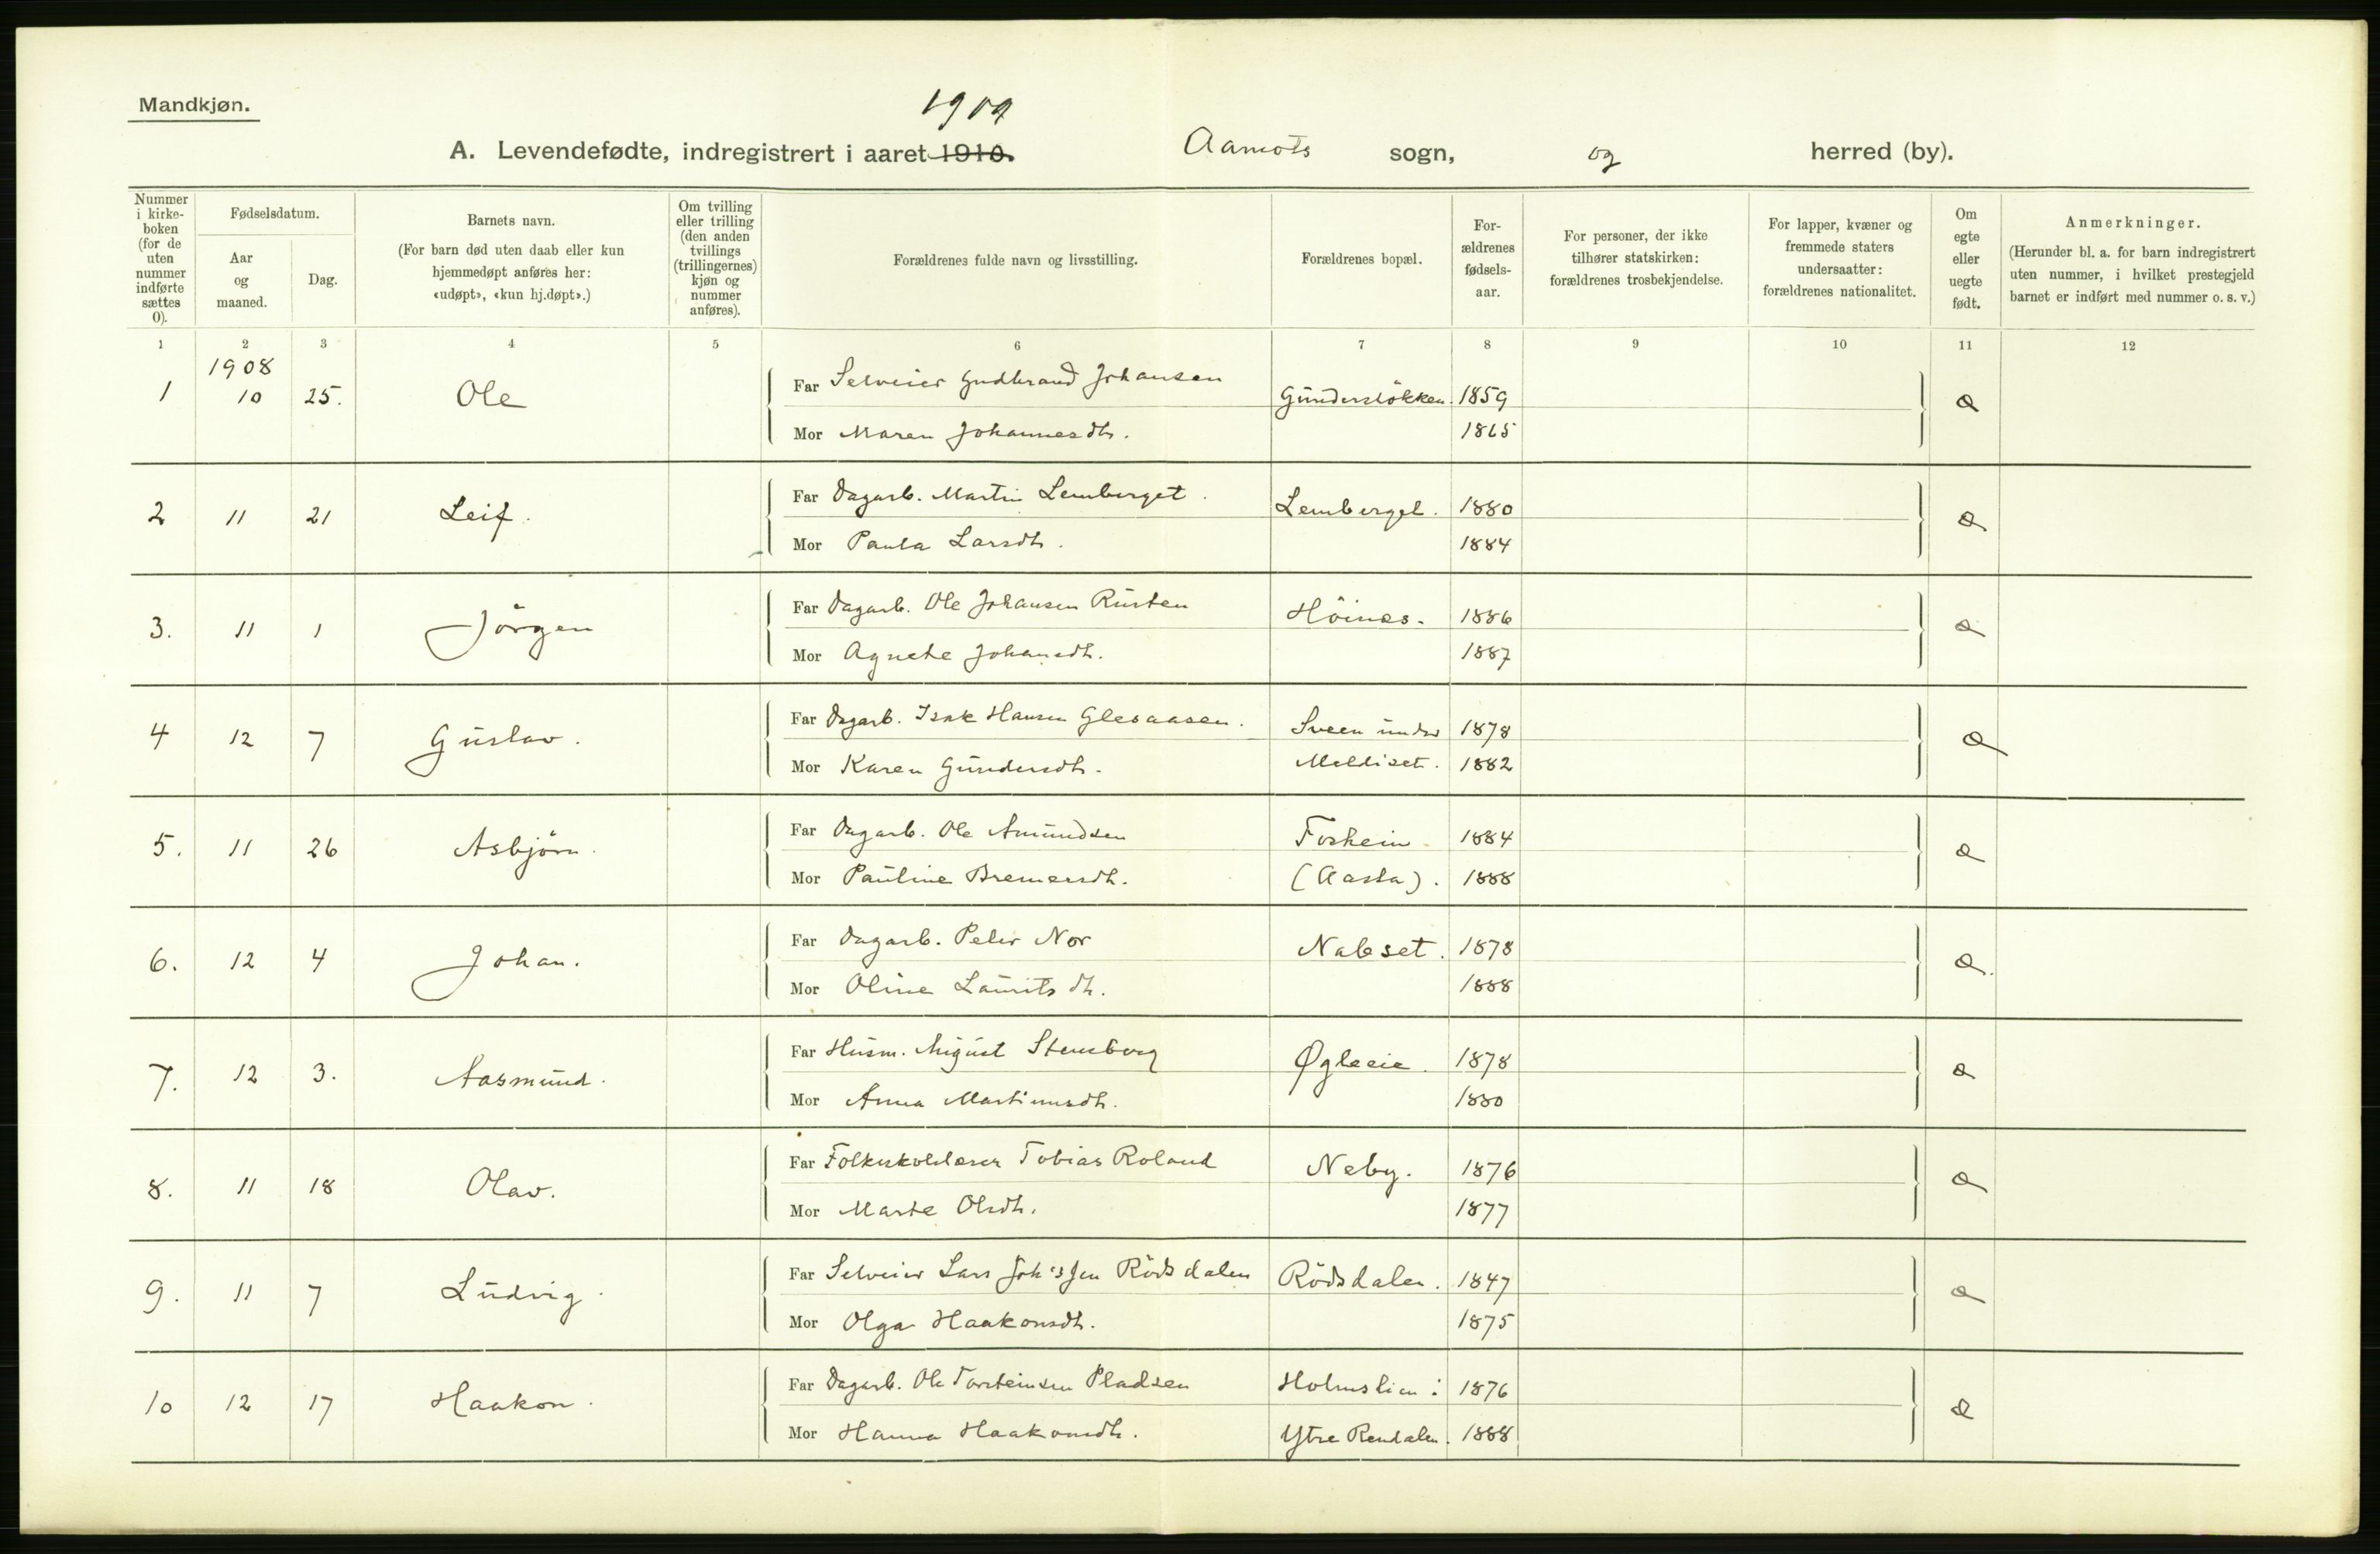 Mandkjøn.
1909
A. Levendefødte, indregistrert i aaret 1910. Aamots sogn, og herred (by).
Nummer i kirke-boken (for de uten nummer indførte sættes 0).
Fødselsdatum.
Aar og maaned.
Dag.
Barnets navn.
(For barn død uten daab eller kun hjemmedøpt anføres her: «udøpt», «kun hj.døpt».)
Om tvilling eller trilling (den anden tvillings (trillingernes) kjøn og nummer anføres).
Forældrenes fulde navn og livsstilling.
Forældrenes bopæl.
For-ældrenes fødsels-aar.
For personer, der ikke tilhører statskirken: forældrenes trosbekjendelse.
For lapper, kvæner og fremmede staters undersaatter: forældrenes nationalitet.
Om egte eller uegte født.
Anmerkninger.
(Herunder bl. a. for barn indregistrert uten nummer, i hvilket prestegjeld barnet er indført med nummer o. s. v.)
1 2 3 4 5 6 7 8 9 10 11 12
1908
1 10 25. Ole Far Selveier Gudbrand Johansen Gundersløkken. 1859 e
Mor Maren Johannesdt. 1865
2 11 21 Leif. Far Dagarb. Martin Lemberget. Lemberget. 1880 e
Mor Paula Larsdt. 1884
3. 11 1 Jörgen Far Dagarb. Ole Johansen Rusten Höines. 1886 e
Mor Agnete Johansdt. 1887
4 12 7 Gustav. Far Dagarb. Isak Hansen Glesaasen. Sveen under 1878 e
Mor Karen Gundersdt. Meldiset. 1882
5. 11 26 Asbjörn. Far Dagarb. Ole Amundsen Forheim 1884 e
Mor Pauline Bremersdt. (Aasta). 1888
6. 12 4 Johan. Far Dagarb. Peter Nor Nabset. 1878 e
Mor Oline Lauritsdt. 1888
7. 12 3. Aasmund. Far Husm. August Stensborg Øgleeie. 1878 e
Mor Anna Martinusdt. 1880
8. 11 18 Olav. Far Folkeskolelærer Tobias Roland Neby. 1876 e
Mor Marte Olsdt. 1877
9. 11 7 Ludvig. Far Selveier Lars Joh's sen Rödsdalen Rödsdalen. 1847 e
Mor Olga Haakonsdt. 1875
10 12 17 Haakon. Far Dagarb. Ole Torsteinsen Pladsen Holmslien i 1876 e
Mor Hanna Haakonsdt. Ytre Rendalen. 1888